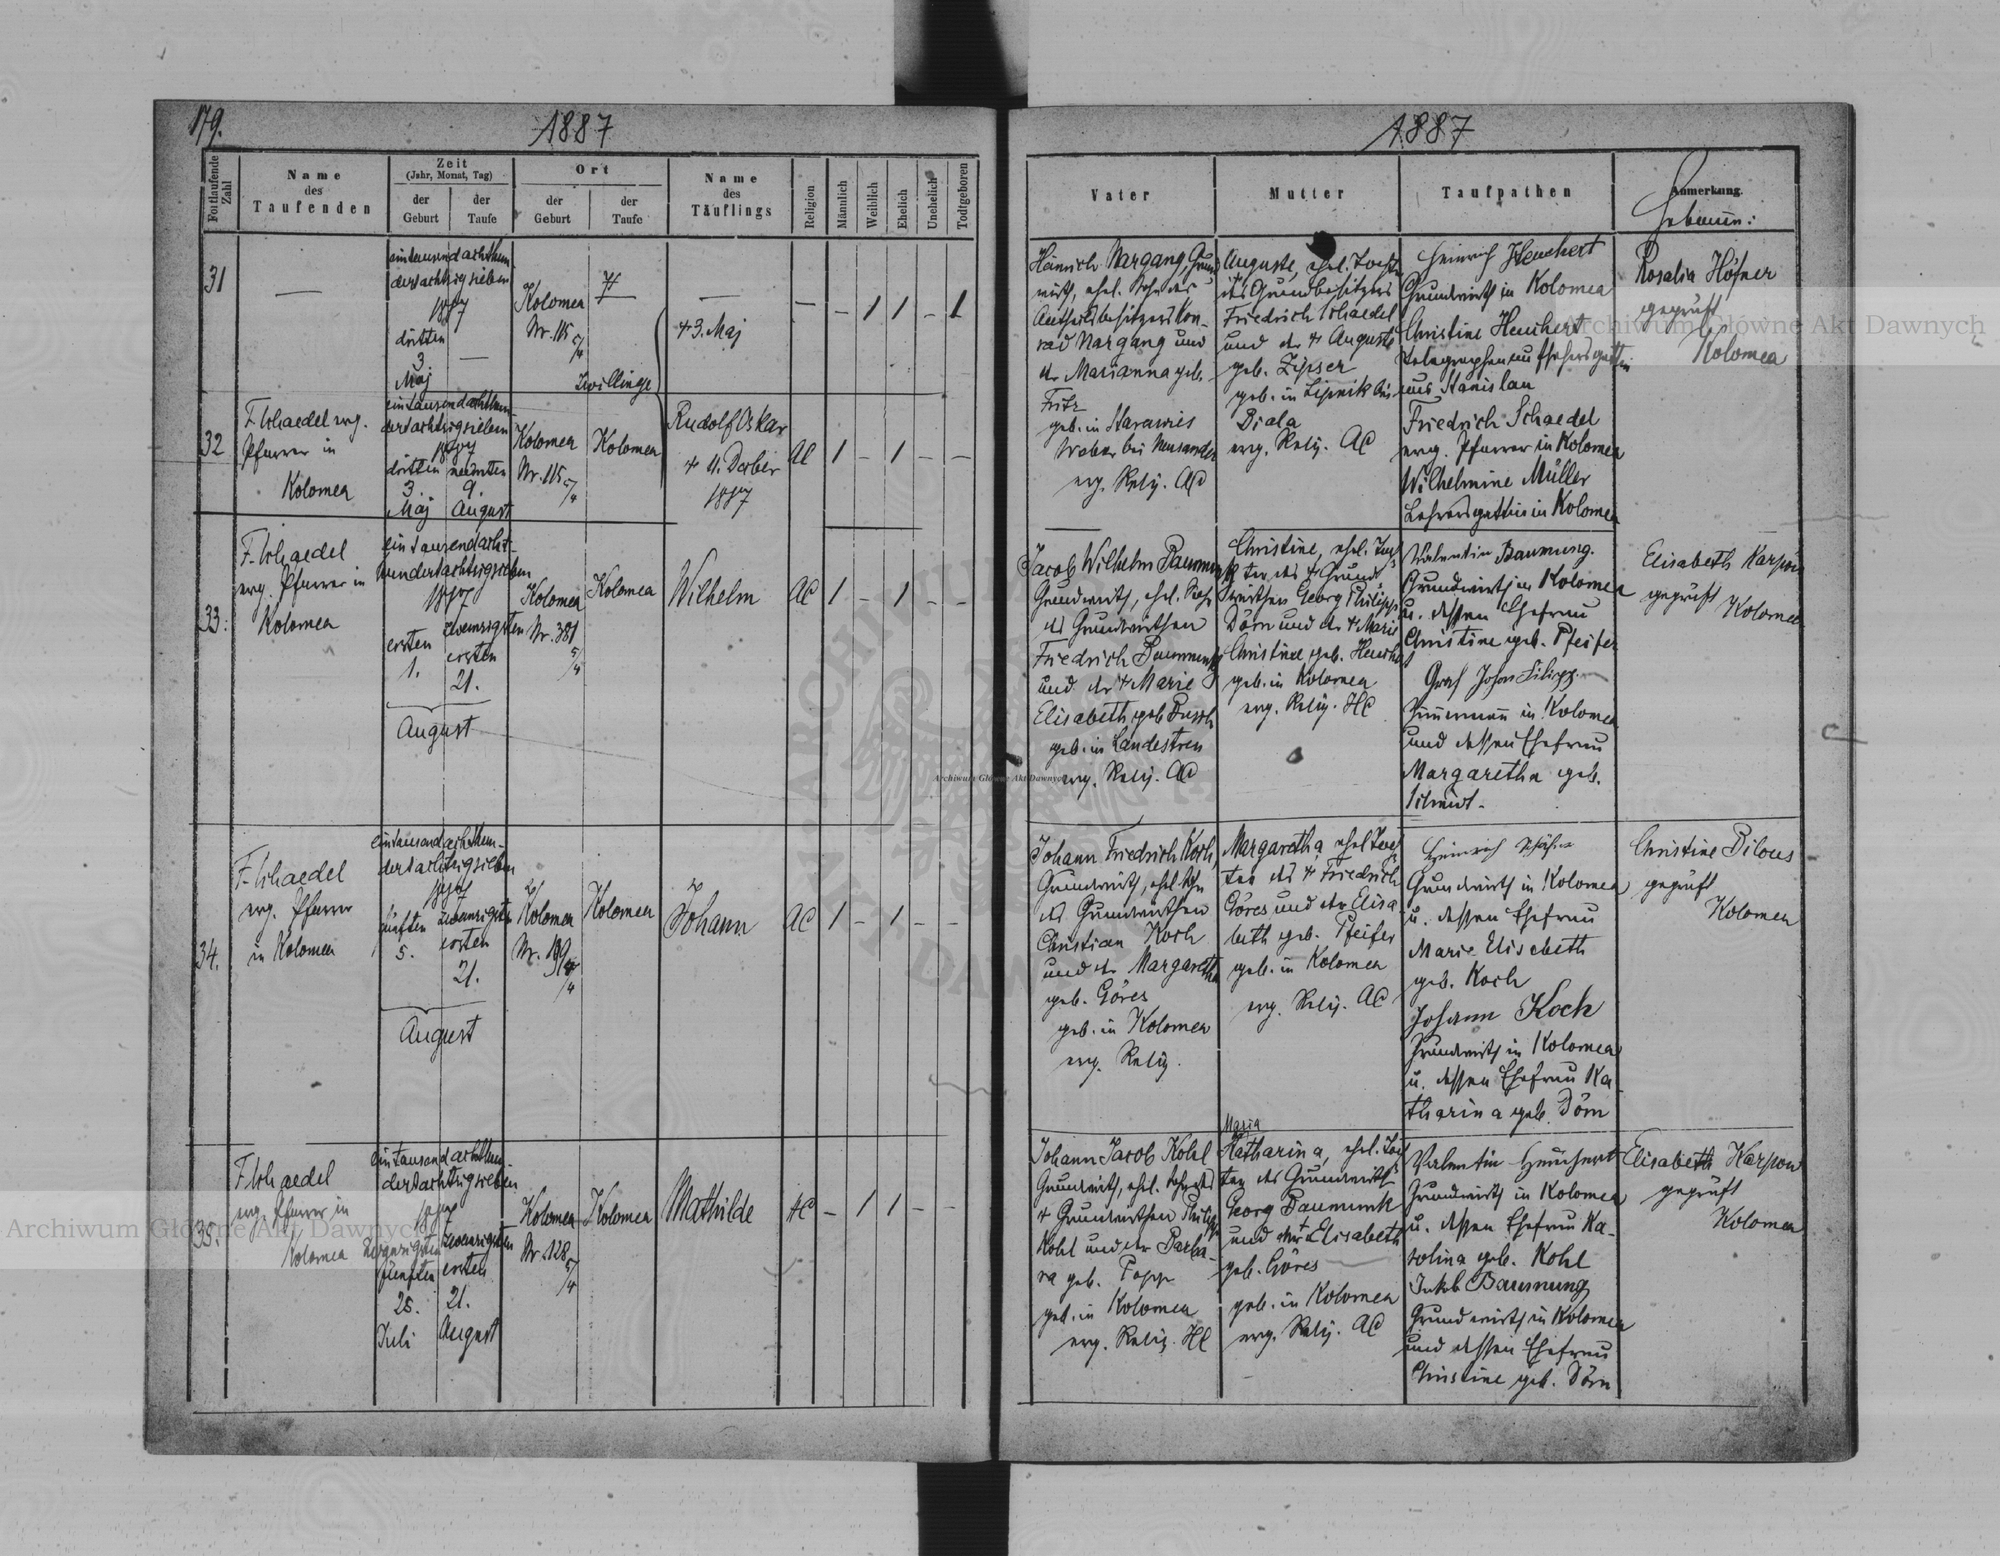 179.
1887
Fortlaufende Zahl
Name
des
Taufenden
Zeit
(Jahr, Monat, Tag)
der
Geburt
der
Taufe
Ort
der
Geburt
der
Taufe
Name
des
Täuflings
Religion
Männlich
Weiblich
Ehelich
Unehelich
Todtgeboren
31
—
eintausendachthun-
dertachtzigsieben
1887
dritten
3.
Maj
—
Kolomea
Nr. 115
5/4
—
Zwillinge
—
+ 3. Maj
— – 1 1 – 1
32
F. Schaedel evg.
Pfarrer in
Kolomea
eintausendachthun-
dertachtzigsieben
1887
dritten neunten
3. 9.
Maj August
Kolomea
Nr. 115
5/4
Kolomea
Rudolf Oskar
+ 11. Dcber
1887
AC 1 – 1 – –
33.
F. Schaedel
evg. Pfarrer in
Kolomea
eintausendacht-
hundertachtzigsieben
1887
ersten zwanzigsten
1. ersten
21.
August
Kolomea
Nr. 381
5/4
Kolomea
Wilhelm
AC 1 – 1 – –
34.
F. Schaedel
evg. Pfarrer
in Kolomea
eintausendachthun-
dertachtzigsieben
1887
fünften zwanzigsten
5. ersten
21.
August
Kolomea
Nr.
Kolomea
Johann
AC 1 – 1 – –
35.
F. Schaedel
evg. Pfarrer in
Kolomea
eintausendachthun-
dertachtzigsieben
1887
zwanzigsten zwanzigsten
fünften ersten
25. 21.
Juli August
Kolomea
Nr. 128
5/4
Kolomea
Mathilde
AC – 1 1 – –
1887
Vater
Mutter
Taufpathen
Anmerkung.
Hebamme:
Heinrich Margang, Grund-
wirth, ehel. Sohn des
Antheilsbesitzers Kon-
rad Margang und
der Marianna geb.
Fritz
geb. in
bei Neusandez
evg. Relig. AC
Auguste, ehel. Tochter
des Grundbesitzers
Friedrich Schaedel
und der + Auguste
geb. Zipser
geb. in Lipnik bei
Biala
evg. Relig. AC
Heinrich Heuchert
Grundwirth in Kolomea
Christine Heuchert
Telegraphenaufsehersgattin
aus Stanislau
Friedrich Schaedel
evg. Pfarrer in Kolomea
Wilhelmine Müller
Lehrersgattin in Kolomea
Rosalia Höfner
geprüft
Kolomea
Jacob Wilhelm Baumunk
Grundwirth, ehel. Sohn
des Grundwirthen
Friedrich Baumunk
und der + Marie
Elisabeth geb. Busch
geb. in Landestreu
evg. Relig. AC
Christine, ehel. Toch-
ter des + Grund-
wirthen Georg Philipp
Dörn und der + Marie
Christine geb. Heuchert
geb. in Kolomea
evg. Relig. HC
Valentin Baumung.
Grundwirth in Kolomea
u. dessen Ehefrau
Christine geb. Pfeifer
Graf Johan Filipp.
Zimmermann in Kolomea
und dessen Ehefrau
Margaretha geb.
Schmidt.
Elisabeth Karpow
geprüft
Kolomea
Johann Friedrich Koch,
Grundwirth, ehel. Sohn
des Grundwirthen
Christian Koch
und der Margaretha
geb. Göres
geb. in Kolomea
evg. Relig.
Margaretha, ehel Toch-
ter des + Friedrich
Göres und der Elisa-
beth geb. Pfeifer
geb. in Kolomea
evg. Relig. AC
Heinrich Schäfer
Grundwirth in Kolomea
u. dessen Ehefrau
Marie Elisabeth
geb. Koch
Johann Koch
Grundwirth in Kolomea
u. dessen Ehefrau Ka-
tharina geb. Dörn
Christine Bilous
geprüft
Kolomea
Johann Jacob Kohl
Grundwirth, ehel. Sohn des
+ Grundwirthen Philipp
Kohl und der Barba-
ra geb. Popp
geb. in Kolomea
evg. Relig. HC
Maria
Katharina, ehel. Toch-
ter des Grundwirths
Georg Baumunk
und der + Elisabeth
geb. Göres
geb. in Kolomea
evg. Relig. AC
Valentin Heuchert
Grundwirth in Kolomea
u. dessen Ehefrau Ka-
rolina geb. Kohl
Jakob Baumung
Grundwirth in Kolomea
und dessen Ehefrau
Christine geb. Dörn
Elisabeth Karpow
geprüft
Kolomea
Archiwum Główne Akt Dawnych
Archiwum Główne Akt Dawnych
Archiwum Główne Akt Dawnych